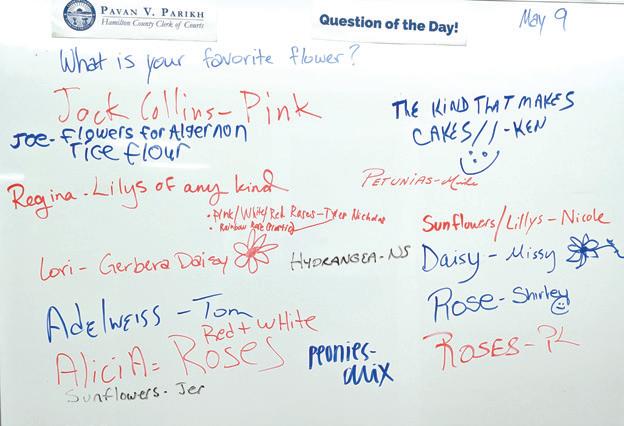 PAVAN V. PARIKH
Hamilton County Clerk of Courts
Question of the Day!
May 9
What is your favorite flower?
Jack Collins - Pink
THE KIND THAT MAKES
CAKES // - KEN
JOE - Flowers for Algernon
rice flour
Regina - Lilys of any kind
PETUNIAS - Mike
• Pink/White/Red Roses - Tyler Nicholas
• Rainbow Rose
Sunflowers/Lillys - Nicole
Lori - Gerbera Daisy
HYDRANGEA - NS
Daisy - Missy
Rose - Shirley
Adelweiss - Tom
Red + White
AliciA = Roses
peonies -
ROSES -
Sunflowers - Jer